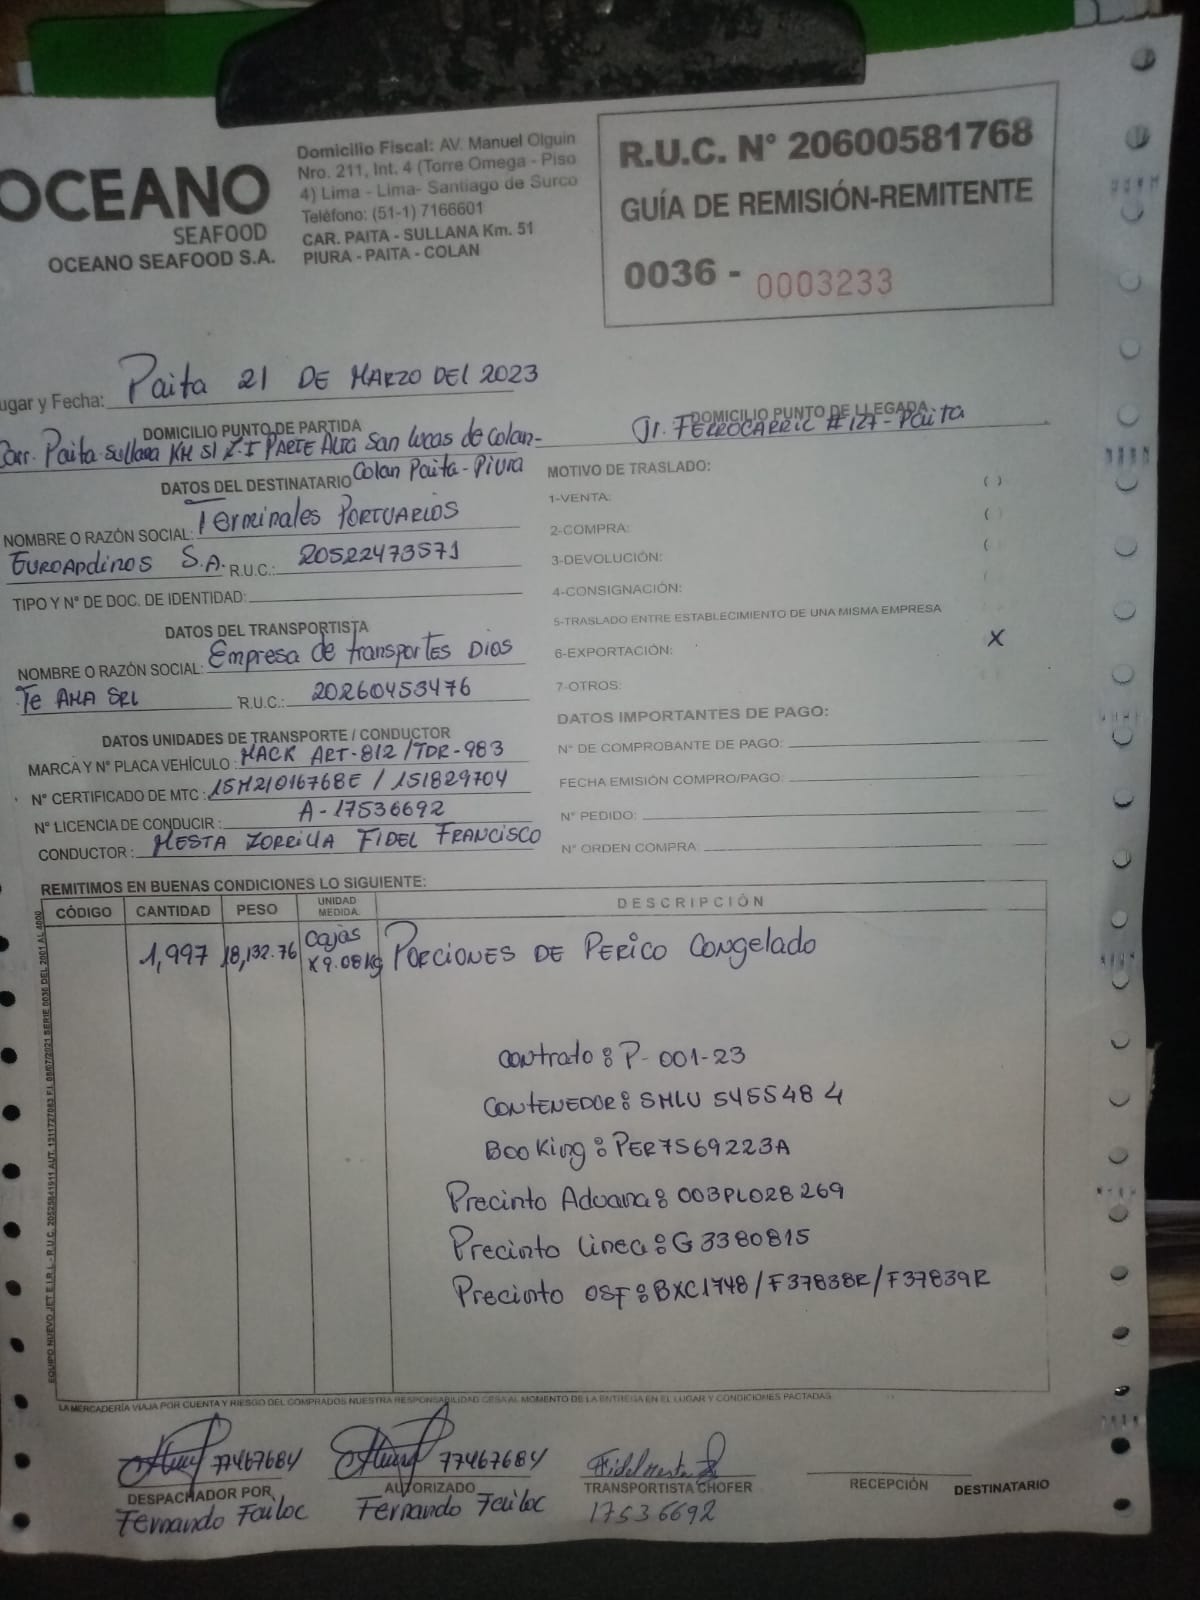 OCEANO
SEAFOOD
OCEANO SEAFOOD S.A.
Domicilio Fiscal: AV. Manuel Olguin
Nro. 211, Int. 4 (Torre Omega - Piso
4) Lima - Lima- Santiago de Surco
Teléfono: (51-1) 7166601
CAR. PAITA - SULLANA Km. 51
PIURA - PAITA - COLAN
R.U.C. N° 20600581768
GUÍA DE REMISIÓN-REMITENTE
0036 - 0003233
ugar y Fecha: Paita 21 DE MARZO DEL 2023
DOMICILIO PUNTO DE PARTIDA
Carr. Paita-Sullana KM 51 Z.I PARTE ALTA San Lucas de Colan-
Colan Paita-Piura
DOMICILIO PUNTO DE LLEGADA
Jr. FERROCARRIL #127-Paita
DATOS DEL DESTINATARIO
NOMBRE O RAZÓN SOCIAL: Terminales PORTUARIOS
EUROANDINOS S.A. R.U.C.: 20522473571
TIPO Y N° DE DOC. DE IDENTIDAD:
DATOS DEL TRANSPORTISTA
NOMBRE O RAZÓN SOCIAL: Empresa de transportes Dios
Te AMA SRL R.U.C.: 20260453476
DATOS UNIDADES DE TRANSPORTE / CONDUCTOR
MARCA Y N° PLACA VEHÍCULO: MACK ART-812/TDR-983
N° CERTIFICADO DE MTC: 15M21016768E / 151829704
N° LICENCIA DE CONDUCIR: A-17536692
CONDUCTOR: MESTA ZORRILLA FIDEL FRANCISCO
MOTIVO DE TRASLADO:
1-VENTA: ( )
2-COMPRA: (
3-DEVOLUCIÓN: (
4-CONSIGNACIÓN:
5-TRASLADO ENTRE ESTABLECIMIENTO DE UNA MISMA EMPRESA
6-EXPORTACIÓN: X
7-OTROS:
DATOS IMPORTANTES DE PAGO:
N° DE COMPROBANTE DE PAGO:
FECHA EMISIÓN COMPRO/PAGO:
N° PEDIDO:
N° ORDEN COMPRA:
REMITIMOS EN BUENAS CONDICIONES LO SIGUIENTE:
CÓDIGO CANTIDAD PESO UNIDAD MEDIDA. DESCRIPCIÓN
1,997 18,132.76 Cajas x9.08kg PORCIONES DE PERICO Congelado
Contrato: P-001-23
CONTENEDOR: SMLU 545548 4
Booking: PER7S69223A
Precinto Aduana: 003PL028269
Precinto Linea: G3380815
Precinto OSF: BXC1748/F37838R/F37839R
EQUIPO NUEVO JET E.I.R.L - R.U.C. 20525841911 AUT. 1311727083 F.I. 08/07/2021 SERIE 0036 DEL 2001 AL 4000
LA MERCADERÍA VIAJA POR CUENTA Y RIESGO DEL COMPRADOS NUESTRA RESPONSABILIDAD CESA AL MOMENTO DE LA ENTREGA EN EL LUGAR Y CONDICIONES PACTADAS
77467684
DESPACHADOR POR
Fernando Failoc
77467684
AUTORIZADO
Fernando Failoc
Fidel Mesta
TRANSPORTISTA CHOFER
17536692
RECEPCIÓN DESTINATARIO